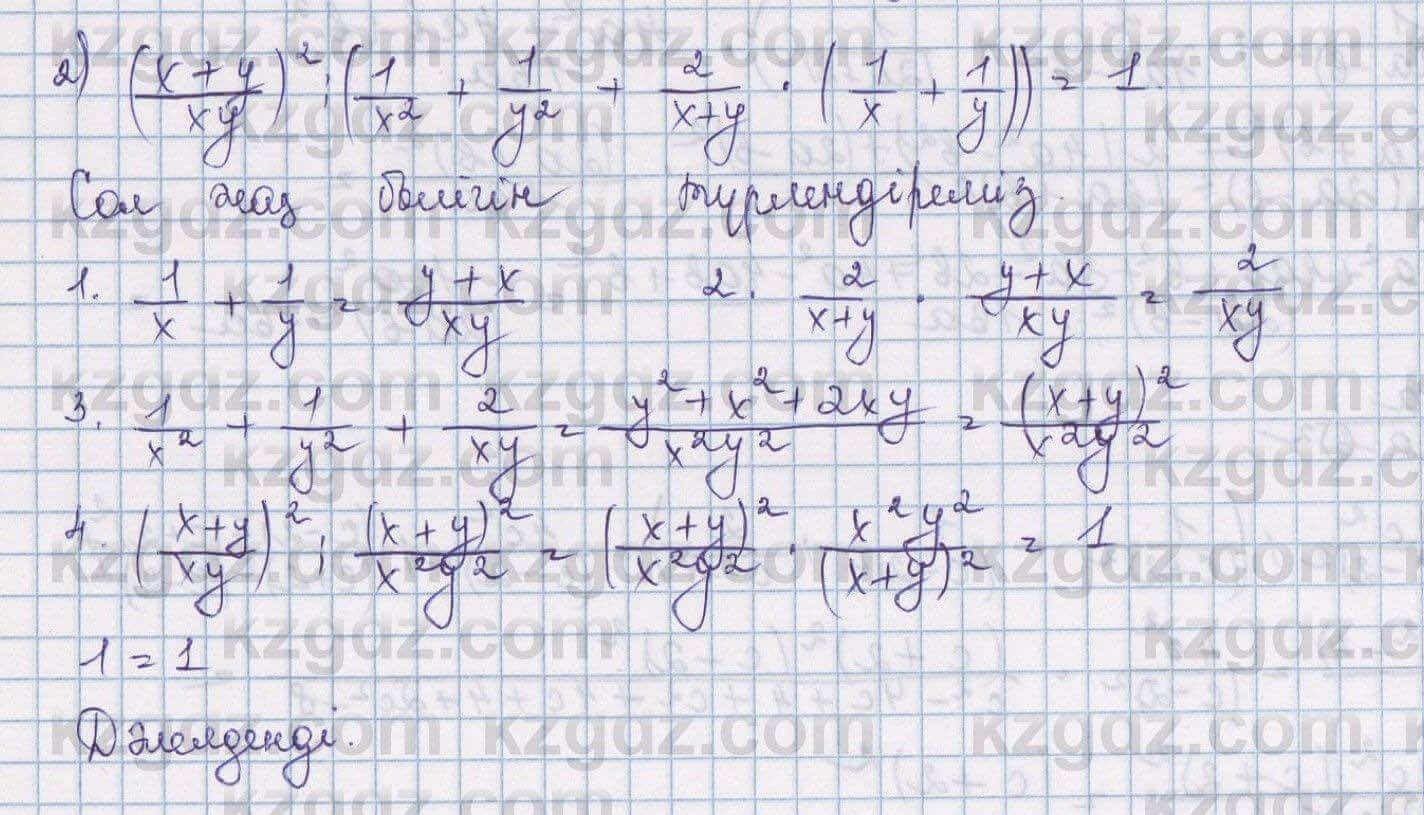 2) ((x+y)/(xy))² : (1/x² + 1/y² + 2/(x+y) · (1/x + 1/y)) = 1.
Сол жақ бөлігін түрлендіреміз.
1. 1/x + 1/y = (y+x)/(xy) 2. 2/(x+y) · (y+x)/(xy) = 2/(xy)
3. 1/x² + 1/y² + 2/(xy) = (y²+x²+2xy)/(x²y²) = (x+y)²/(x²y²)
4. ((x+y)/(xy))² : (x+y)²/(x²y²) = (x+y)²/(x²y²) · x²y²/(x+y)² = 1
1 = 1
Дәлелденді.
kzgdz.com